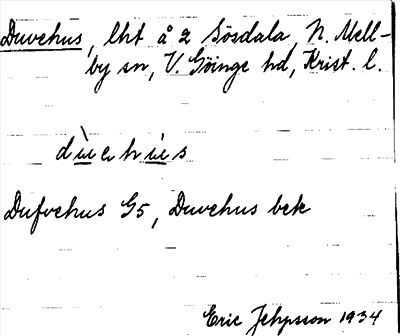 Duvehus, lht å 2 Sösdala, N. Mell-
by sn, V. Göinge hd, Krist. l.
dùehùs
Dufvehus G5, Duvehus bek
Eric Jepsson 1934